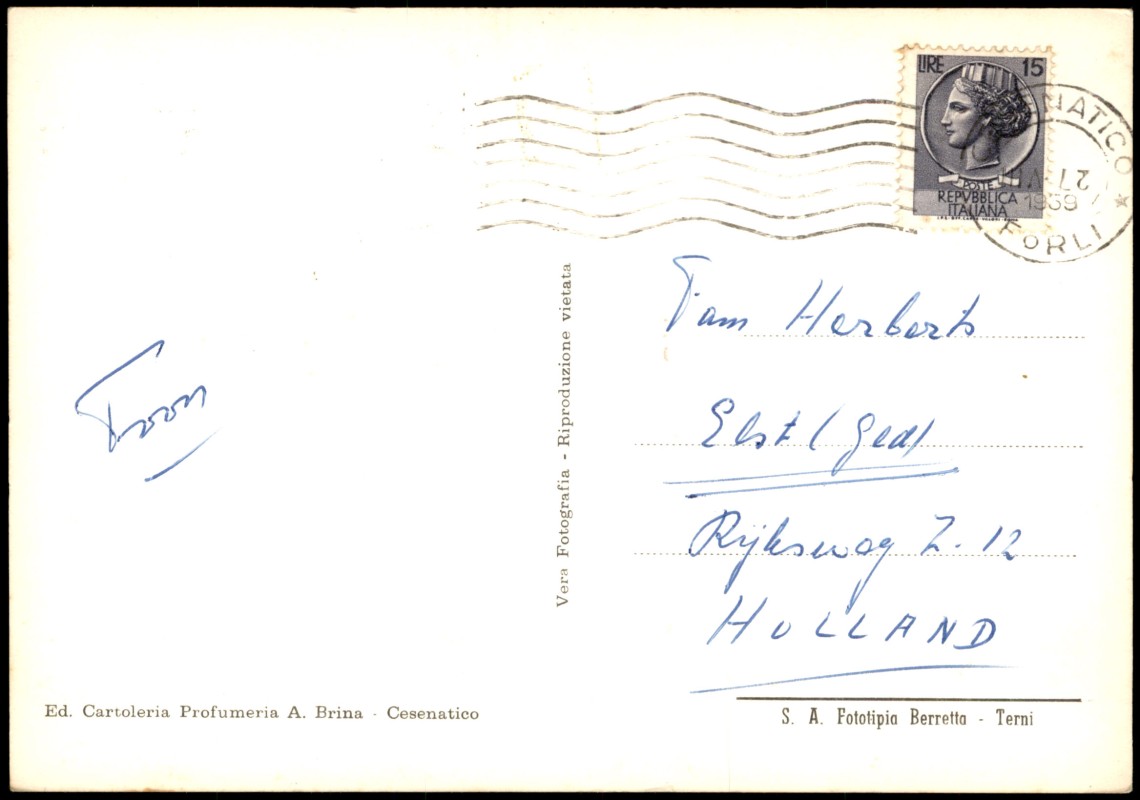 LIRE 15
POSTE
REPVBBLICA
ITALIANA
NATICO
27
1959
FORLI
Fam Herberts
Elst (Ged)
Rijksweg Z. 12
HOLLAND
Toon
Vera Fotografia - Riproduzione vietata
Ed. Cartoleria Profumeria A. Brina - Cesenatico
S. A. Fototipia Berretta - Terni